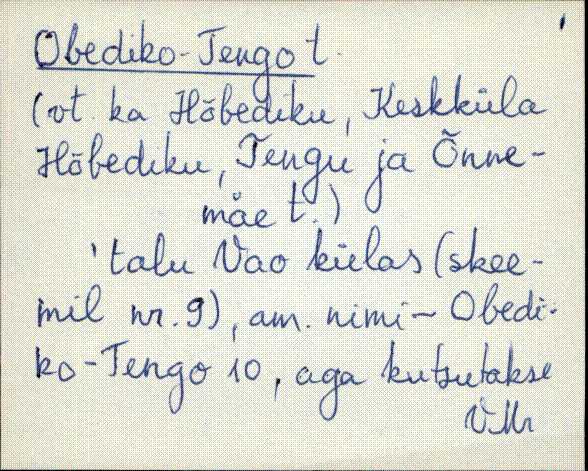 Obediko-Tengo t.
(vt. ka Hõbediku, Keskküla
Hõbediku, Tengu ja Õnne-
mäe t.)
'talu Vao külas (skee-
mil nr. 9), am. nimi ~ Obedi-
ko-Tengo 10, aga kutsutakse
VMr